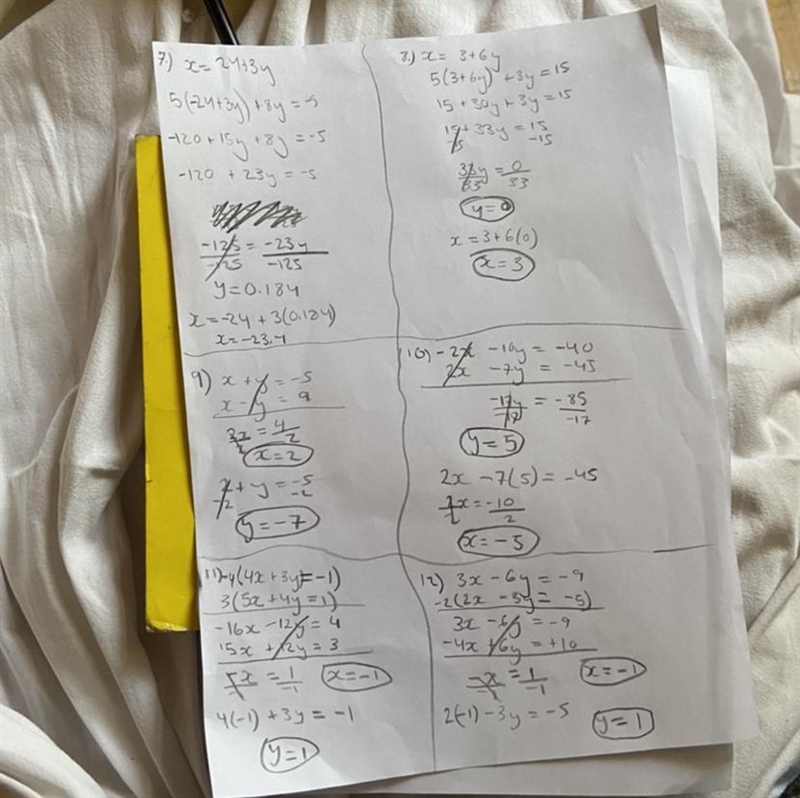 7.) x = 24+3y
5(-24+3y)+8y = -5
-120 + 15y + 8y = -5
-120 + 23y = -5
-125 = -23y
-125 -125
y = 0.184
x = -24 + 3(0.184)
x = -23.4
8.) x = 3+6y
5(3+6y) + 3y = 15
15 + 30y + 3y = 15
15 + 33y = 15
-15 -15
33y = 0
33 33
y = 0
x = 3+6(0)
x = 3
9) x + y = -5
x - y = 9
2x = 4
2 2
x = 2
2 + y = -5
-2 -2
y = -7
10) -2x -10y = -40
2x -7y = -45
-17y = -85
-17 -17
y = 5
2x - 7(5) = -45
2x = -10
2 2
x = -5
11) -4(4x + 3y = -1)
3(5x + 4y = 1)
-16x - 12y = 4
15x + 12y = 3
-x = 1
-1 -1
x = -1
4(-1) + 3y = -1
y = 1
12) 3x - 6y = -9
-2(2x - 3y = -5)
3x - 6y = -9
-4x + 6y = +10
-x = 1
-1 -1
x = -1
2(-1) - 3y = -5
y = 1